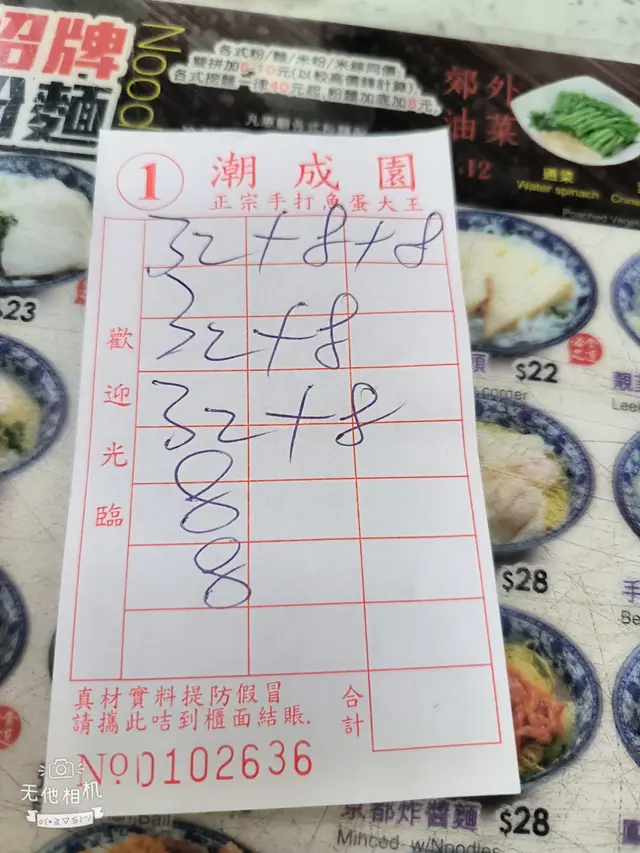 招牌
粉麵
Nood
各式粉/麵/米粉/米線同價
雙拼加8-10元(以較高價錢計算)
各式撈麵一律40元起,粉麵加底加8元
郊外
油菜
.12
通菜
Water spinach
Poached Vege
$23
① 潮成園
正宗手打魚蛋大王
32+8+8
32+8
32+8
8
8
歡迎光臨
真材實料提防假冒
請攜此咭到櫃面結賬.
合計
No 0102636
$22
corner
Lee
$28
手
Be
京都炸醬麵 $28
Minced w/Noodles
Ball
无他相机